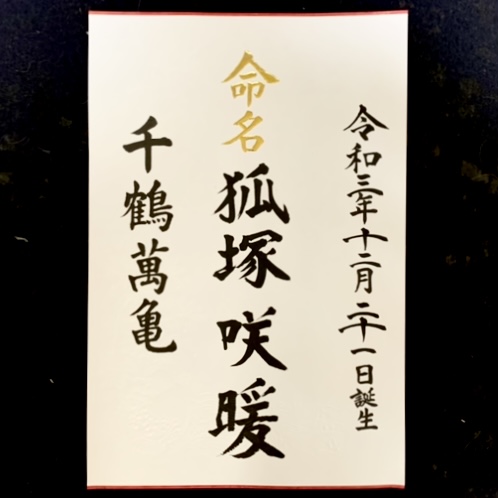 令和三年十二月二十一日誕生
命名
狐塚咲暖
千鶴萬亀